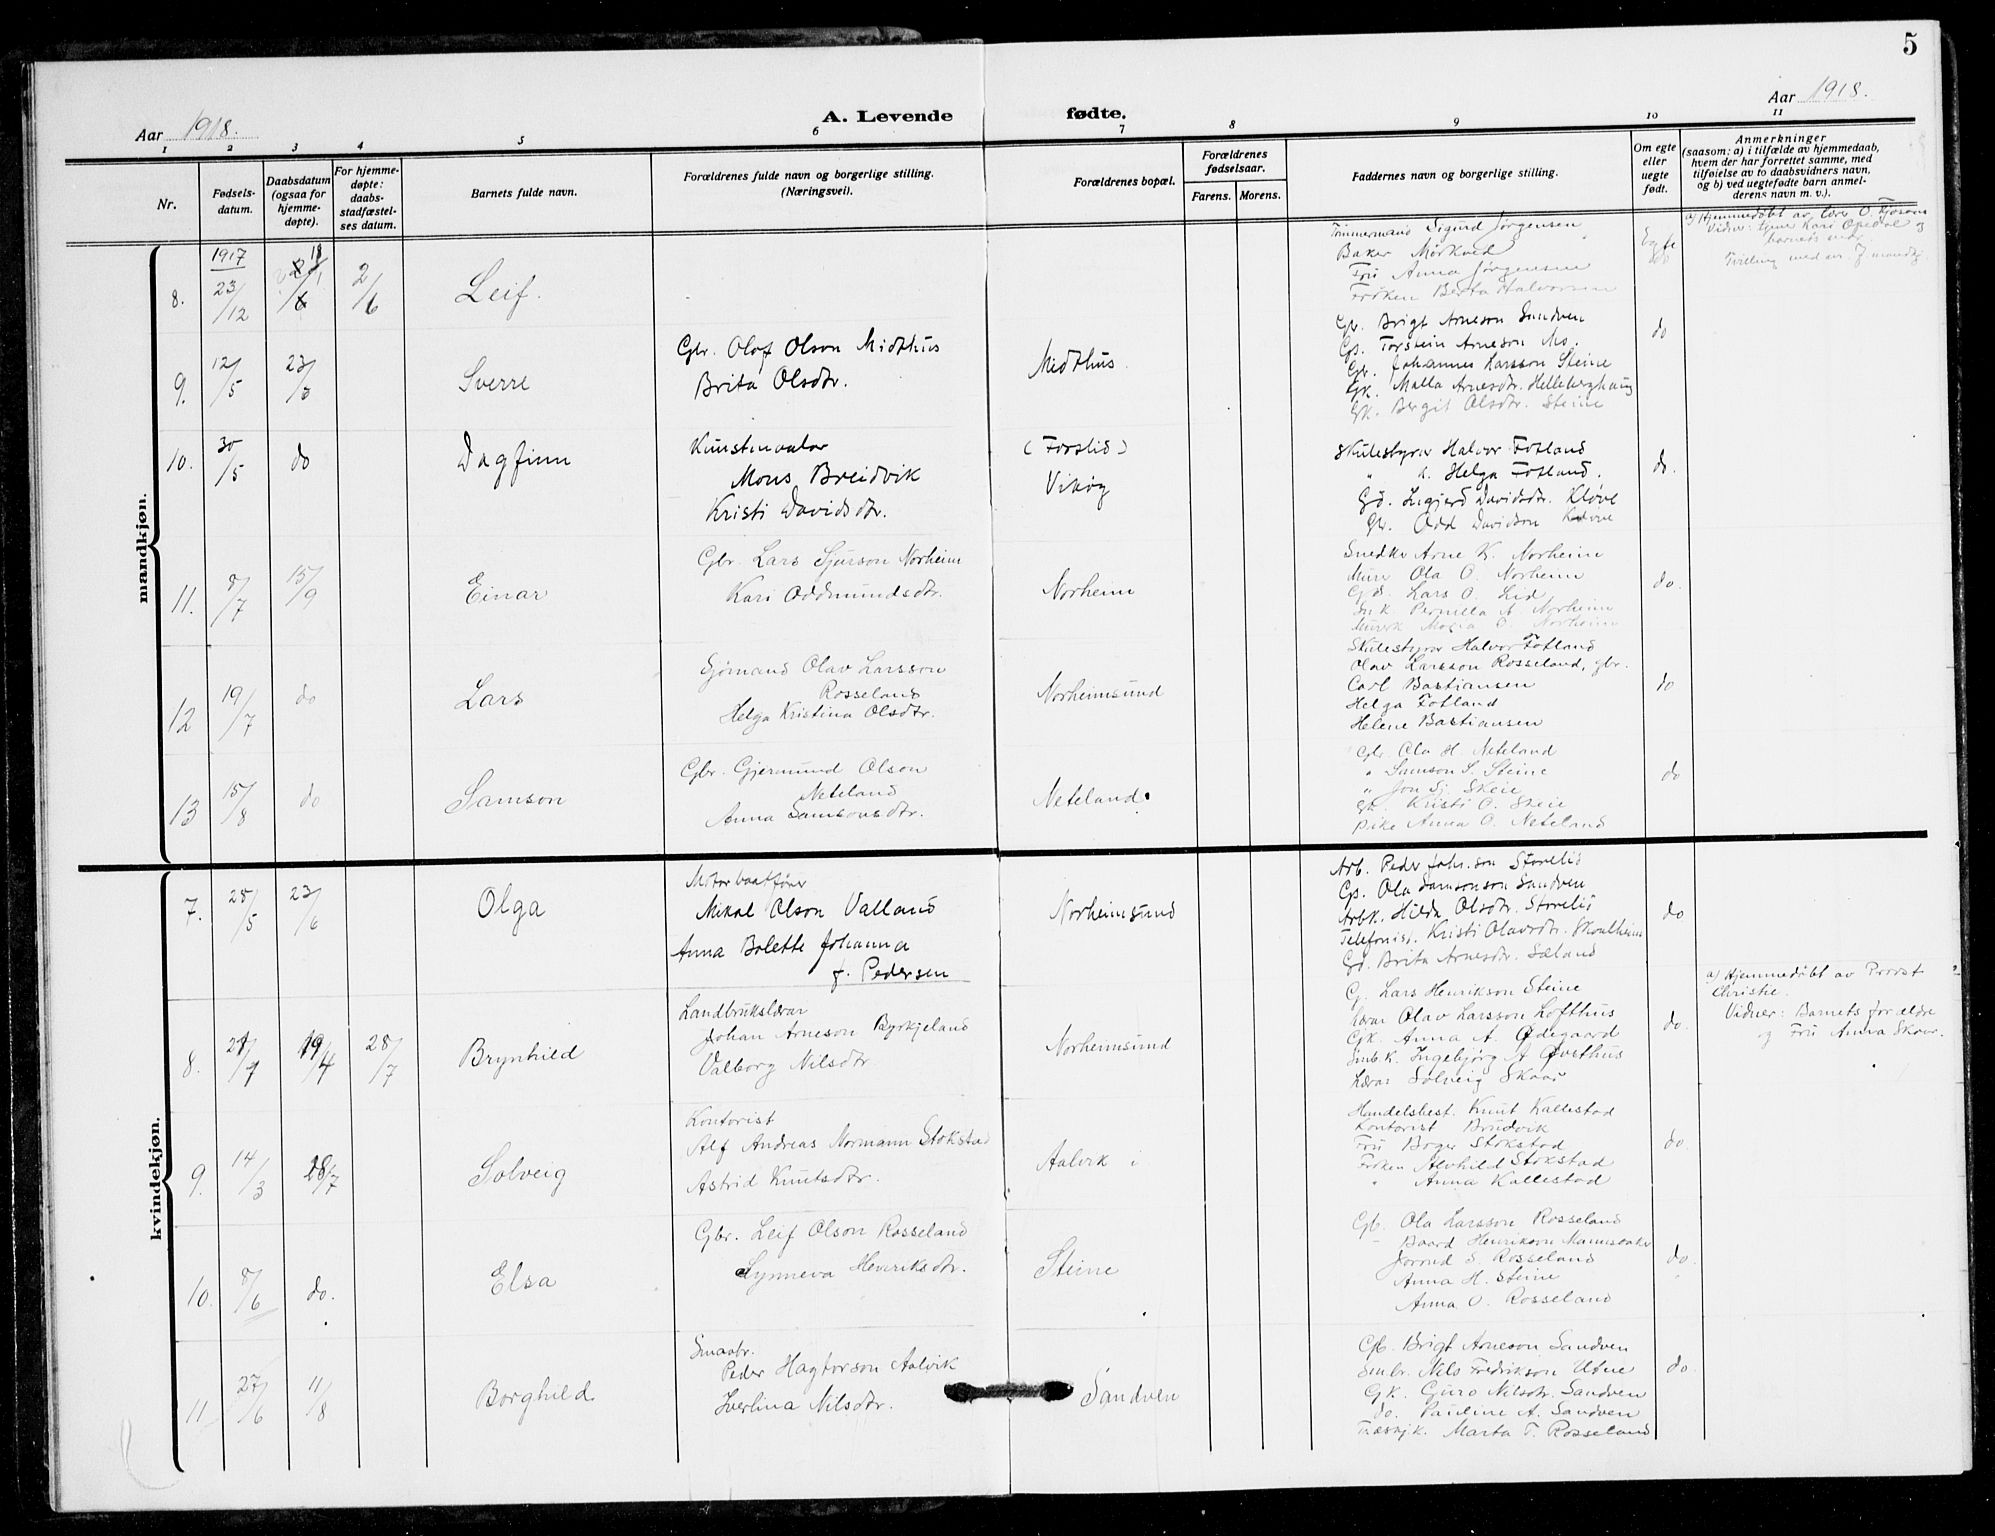 5
Aar 1918.
A. Levende fødte.
Aar 1918.
1 2 3 4 5 6 7 8 9 10 11
Nr.
Fødsels-
datum.
Daabsdatum
(ogsaa for
hjemme-
døpte).
For hjemme-
døpte:
daabs-
stadfæstel-
ses datum.
Barnets fulde navn.
Forældrenes fulde navn og borgerlige stilling.
(Næringsvei).
Forældrenes bopæl.
Forældrenes
fødselsaar.
Farens. Morens.
Faddernes navn og borgerlige stilling.
Om egte
eller
uegte
født.
Anmerkninger
(saasom: a) i tilfælde av hjemmedaab,
hvem der har forrettet samme, med
tilføielse av to daabsvidners navn,
og b) ved uegtefødte barn anmel-
derens navn m. v.).
mandkjøn.
8.
1917
23/12
2/6
Leif.
Tømmermand Sigurd Jørgensen
Baker Mørkved
Fru Anna Jørgensen
Frøken Berta Halvorsen
Egte
a) Hjemmedøbt av lærer O.
Tvilling med nr. 7 mandkj.
9.
12/5
23/6
Sverre
Gbr. Olof Olson Midthus
Brita Olsdtr.
Midthus.
Gbr. Brigt Arneson Sandven
Gs. Torstein Arneson Mo.
Gbr. Johannes Larsson Steine
Gk. Malla Arnesdtr. Helleberghaug
Gk. Bergit Olsdtr. Steine
do
10.
30/5
do
Dagfinn
Kunstmaalar
Mons Breidvik
Kristi Davidsdtr.
(Forslid)
Vikøy
Skulestyrar Halvor Fotland
Helga Fotland.
Gd. Ingjerd Davidsdtr. Kløve
Gbr. Odd Davidson Kløve
do.
11.
8/7
15/9
Einar
Gbr. Lars Sjurson Norheim
Kari Oddmundsdtr.
Norheim
Snedke Arne K. Norheim
Murer Ola O. Norheim
Gbr. Lars O. Lid
Snk. Pernilla A. Norheim
Murerk. Maria O. Norheim
do.
12
19/7
do
Lars
Sjømand Olav Larsson
Rosseland
Helga Kristina Olsdtr.
Norheimsund
Skulestyrar Halvor Fotland
Olav Larsson Rosseland, gbr.
Carl Bastiansen
Helga Fotland
Helene Bastiansen
do
13
15/8
do
Samson
Gbr. Gjermund Olson
Neteland
Anna Samsonsdtr.
Neteland.
Gbr. Ola H. Neteland
" Samson S. Steine
" Jon Sj. Skeie
Gk. Kristi O. Skeie
Pike Anna O. Neteland
do
kvindekjøn.
7.
28/5
23/6
Olga
Motorbaatfører
Mikal Olson Valland
Anna Bolette Johanna
f. Pedersen
Norheimsund
Arb. Peder Joh.son Storelid
Gs. Ola Samsonson Sandven
Arbk. Hilda Olsdtr. Storelid
Telefonist. Kristi Olavsdtr. Skoalheim
Gd. Brita Arnesdtr. Sæland
do
8.
19/4
28/7
Brynhild
Landbrukslærar
Johan Arneson Byrkjeland
Valborg Nilsdtr.
Norheimsund
G. Lars Henrikson Steine
Lærar Olav Larsson Lofthus
Gk. Anna A. Ødegaard
Smbk. Ingebjørg A. Øvsthus
Lærar Solveig Skaar
do.
a) Hjemmedøbt av Provst
Christie.
Vidner: Barnets forældre
og Fru Anna Skaar.
9.
14/3
28/7
Solveig
Kontorist
Alf Andreas Normann Stokstad
Astrid Knutsdtr.
Aalvik i
Handelsbest. Knut Kallestad
Kontorist Brudvik
Fru Borger Stokstad
Frøken Alvhild Stokstad
" Anna Kallestad
do.
10.
8/6
do.
Elsa
Gbr. Leif Olson Rosseland
Synneva Henriksdtr.
Steine
Gb. Ola Larsson Rosseland
Baard Henrikson Mannsaaker
Jorond S. Rosseland
Anna H. Steine
Anna O. Rosseland
do.
11
27/6
11/8
Borghild
Smaabr.
Peder Hagtorson Aalvik
Iverlina Nilsdtr.
Sandven
Gb. Brigt Arneson Sandven
Smbr. Nils Fredrikson Utne
Gk. Guro Nilsdtr. Sandven
do. Pauline A. Sandven
Marta T. Rosseland
do.